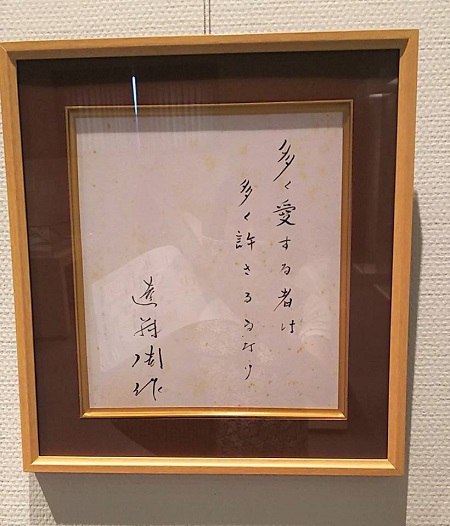 多く愛する者は
多く許さるるなり
遠藤周作